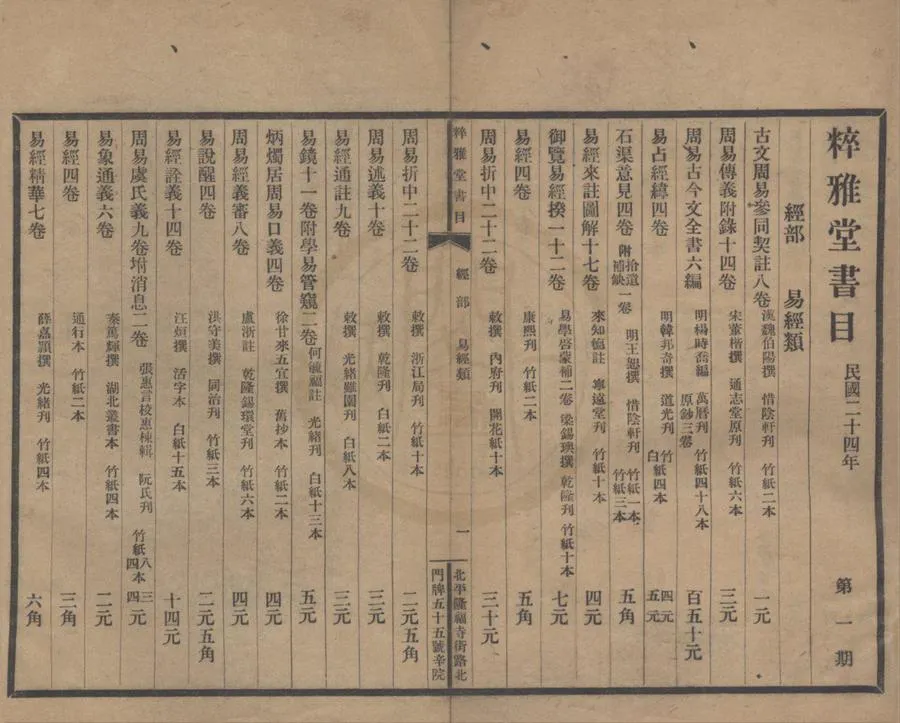 粹雅堂書目 民國二十四年 第一期
經部 易經類
古文周易參同契註八卷 漢魏伯陽撰 惜陰軒刊 竹紙二本 一元
周易傳義附錄十四卷 宋董楷撰 通志堂原刊 竹紙六本 三元
周易古今文全書六編 明楊時喬編 萬曆刊 原鈔三卷 竹紙四十八本 百五十元
易占經緯四卷 明韓邦奇撰 道光刊 竹白紙四本 四元 五元
石渠意見四卷 附拾遺補缺一卷 明王恕撰 惜陰軒刊 竹紙一本 竹紙三本 五角
易經來註圖解十七卷 來知德註 寧遠堂刊 竹紙十本 四元
御覽易經揆一十二卷 易學啓蒙補二卷 梁錫璵撰 乾隆刊 竹紙十本 七元
易經四卷 康熙刊 竹紙二本 五角
周易折中二十二卷 敕撰 內府刊 開花紙十本 三十元
粹雅堂書目 經部 易經類 一 北平隆福寺街路北門牌五十五號辛院
周易折中二十二卷 敕撰 浙江局刊 竹紙十本 二元五角
周易述義十卷 敕撰 乾隆刊 白紙二本 三元
易經通註九卷 敕撰 光緒雖園刊 白紙八本 三元
易鏡十一卷附學易管窺二卷 何毓福註 光緒刊 白紙十三本 五元
炳燭居周易口義四卷 徐甘來五宜撰 舊抄本 竹紙二本 四元
周易經義審八卷 盧浙註 乾隆錫環堂刊 竹紙六本 四元
易說醒四卷 洪守美撰 同治刊 竹紙三本 二元五角
易經詮義十四卷 汪烜撰 活字本 白紙十五本 十四元
周易虞氏義九卷坿消息二卷 張惠言校惠棟輯 阮氏刊 竹紙八四本 三四元
易象通義六卷 秦篤輝撰 湖北叢書本 竹紙四本 二元
易經四卷 通行本 竹紙二本 三角
易經精華七卷 薛嘉穎撰 光緒刊 竹紙四本 六角